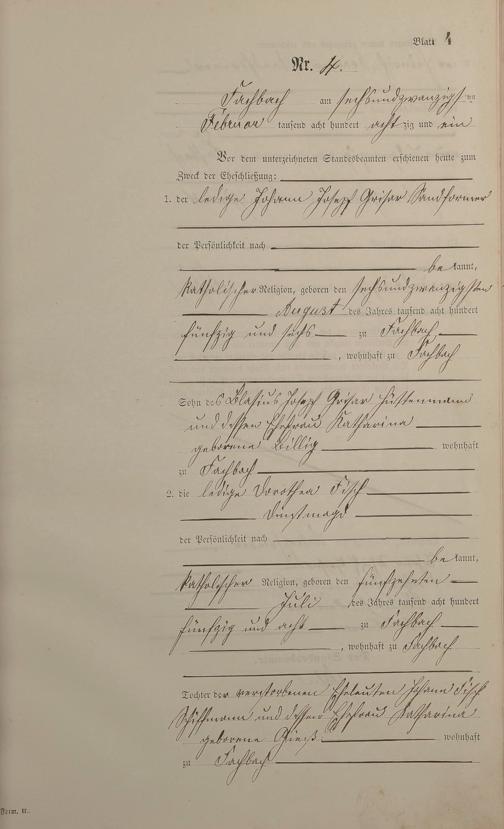 Blatt 4
Nr. 4.
Fachbach am sechsundzwanzigsten
Februar tausend acht hundert achtzig und ein
Vor dem unterzeichneten Standesbeamten erschienen heute zum
Zweck der Eheschließung:
1. der ledige Johann Joseph Grisar Sandformer
der Persönlichkeit nach
be kannt,
katholischer Religion, geboren den sechsundzwanzigsten
August des Jahres tausend acht hundert
fünfzig und sechs zu Fachbach
, wohnhaft zu Fachbach
Sohn des Blasius Joseph Grisar Hüttenmann
und dessen Ehefrau Katharina
geborene Billig wohnhaft
zu Fachbach
2. die ledige Dorothea Fisch
Dienstmagd
der Persönlichkeit nach
be kannt,
katholischer Religion, geboren den fünfzehnten
Juli des Jahres tausend acht hundert
fünfzig und acht zu Fachbach
, wohnhaft zu Fachbach
Tochter der verstorbenen Eheleuten Johann Fisch
Schiffmann und dessen Ehefrau Katharina
geborene wohnhaft
zu Fachbach
Form.